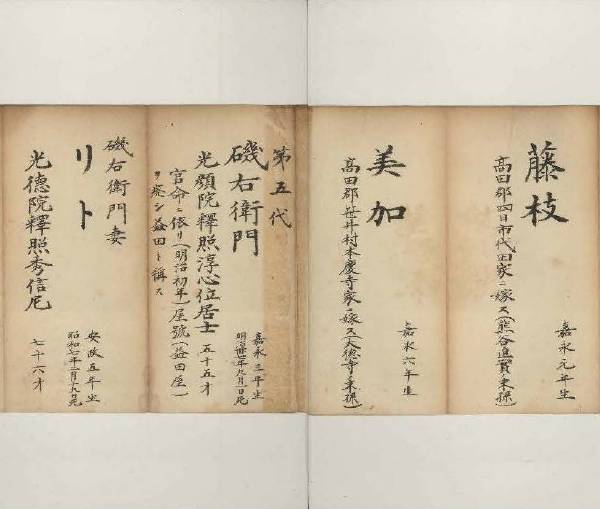 藤枝
嘉永元年生
高田郡四日市代田家ニ嫁ス(熊谷進實末孫)
美加
嘉永六年生
高田郡笹井村本慶寺家ニ嫁ス(大徳寺末孫)
第五代
磯右衛門
嘉永三年生
明治卅七年九月一日死
光顔院釋照淳心位居士 五十五才
官命ニ依リ(明治初年)屋號(益田屋)
ヲ廃シ益田ト稱ス
磯右衛門妻
リト
安政五年生
昭和七年一月十九日死
光德院釋照秀信尼 七十六才